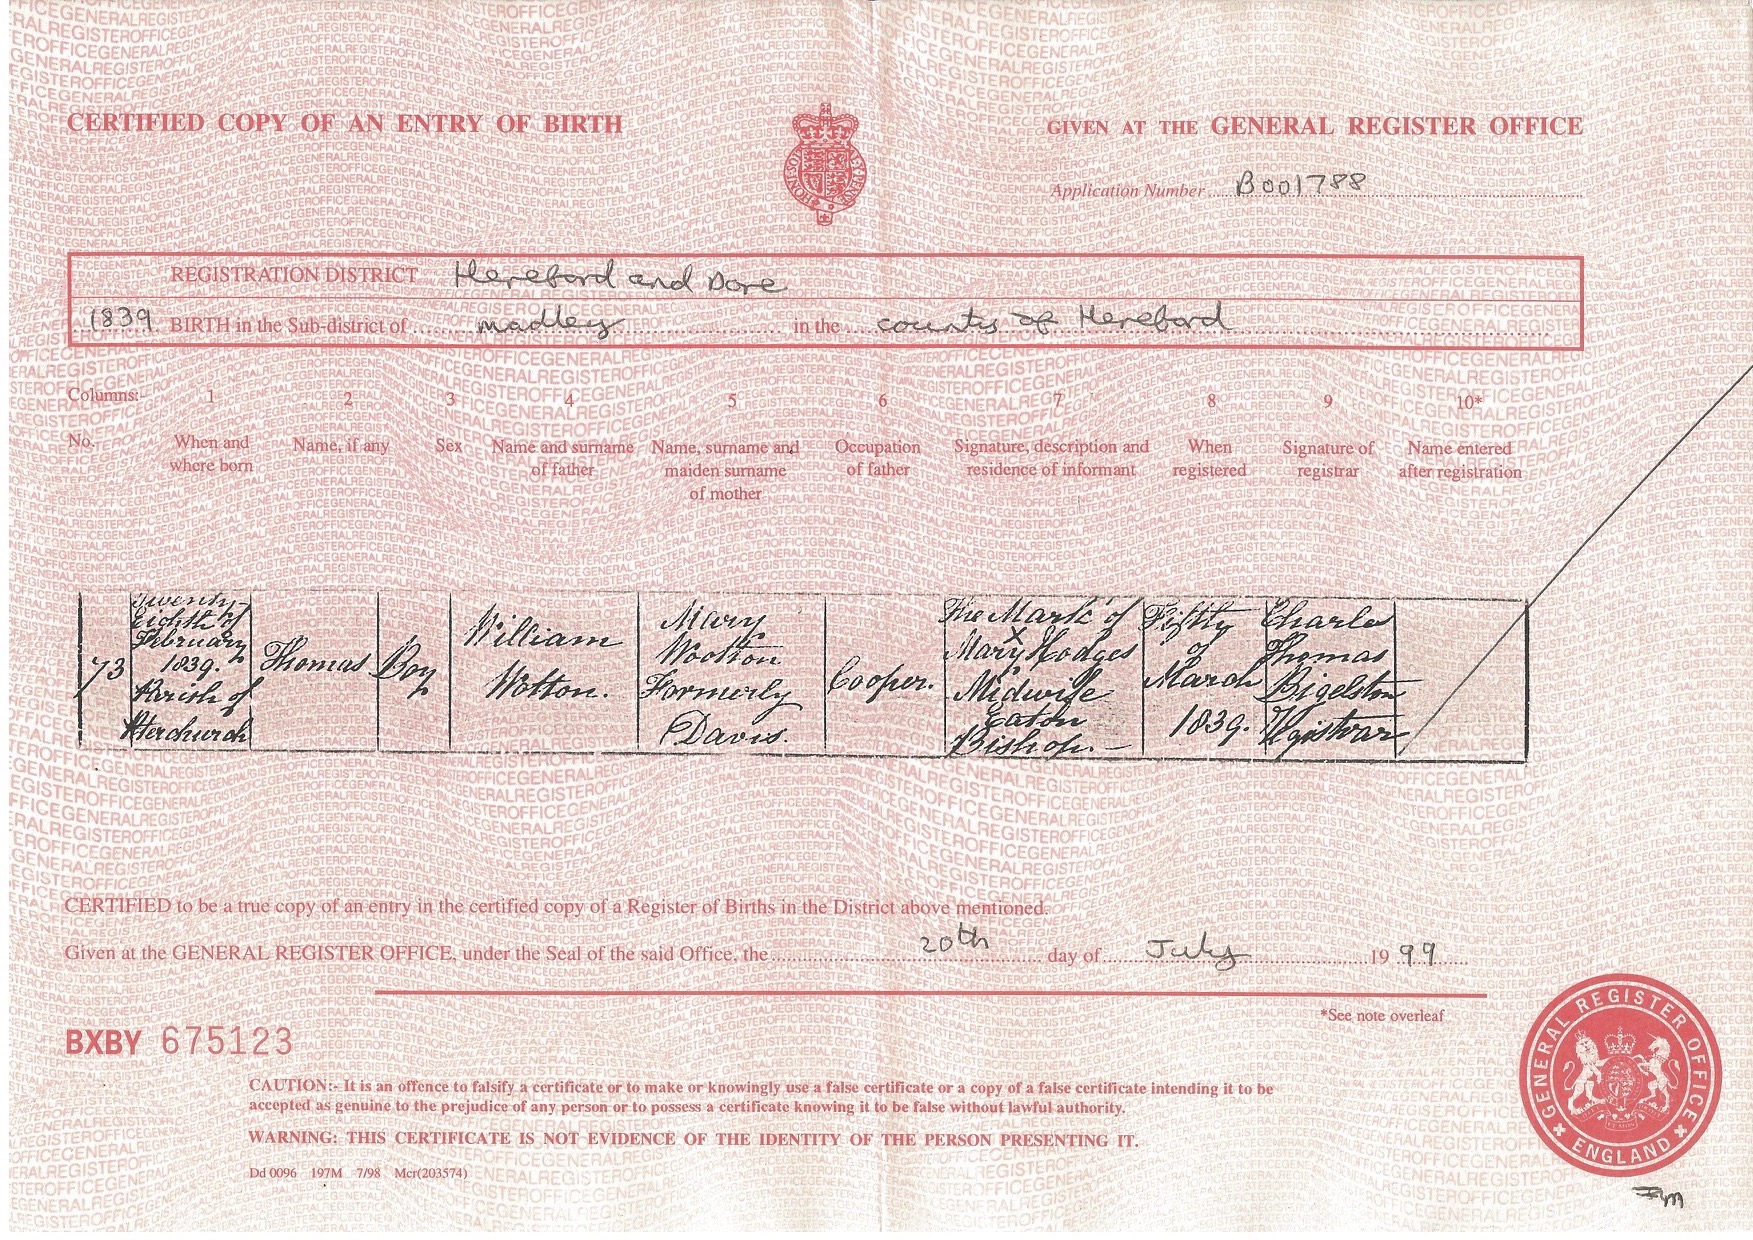 CERTIFIED COPY OF AN ENTRY OF BIRTH
GIVEN AT THE GENERAL REGISTER OFFICE
Application Number B001788
REGISTRATION DISTRICT Hereford and Dore
1839 BIRTH in the Sub-district of madley in the county of Hereford
Columns:- 1 2 3 4 5 6 7 8 9 10*
No.
When and
where born
Name, if any
Sex
Name and surname
of father
Name, surname and
maiden surname
of mother
Occupation
of father
Signature, description and
residence of informant
When
registered
Signature of
registrar
Name entered
after registration
73
Twenty-
Eighth of
February
1839.
Parish of
Thomas
Boy
William
Wotton.
Mary
Wootton
Formerly
Davis.
Cooper.
The Mark of
X
Mary Hodges
Midwife
Eaton
Bishop.
Fifth
of
March
1839.
Charles
Thomas
Registrar
CERTIFIED to be a true copy of an entry in the certified copy of a Register of Births in the District above mentioned.
Given at the GENERAL REGISTER OFFICE, under the Seal of the said Office, the 20th day of July 1999
*See note overleaf
BXBY 675123
CAUTION:- It is an offence to falsify a certificate or to make or knowingly use a false certificate or a copy of a false certificate intending it to be
accepted as genuine to the prejudice of any person or to possess a certificate knowing it to be false without lawful authority.
WARNING: THIS CERTIFICATE IS NOT EVIDENCE OF THE IDENTITY OF THE PERSON PRESENTING IT.
Dd 0096 197M 7/98 Mcr(203574)
GENERAL REGISTER OFFICE
ENGLAND